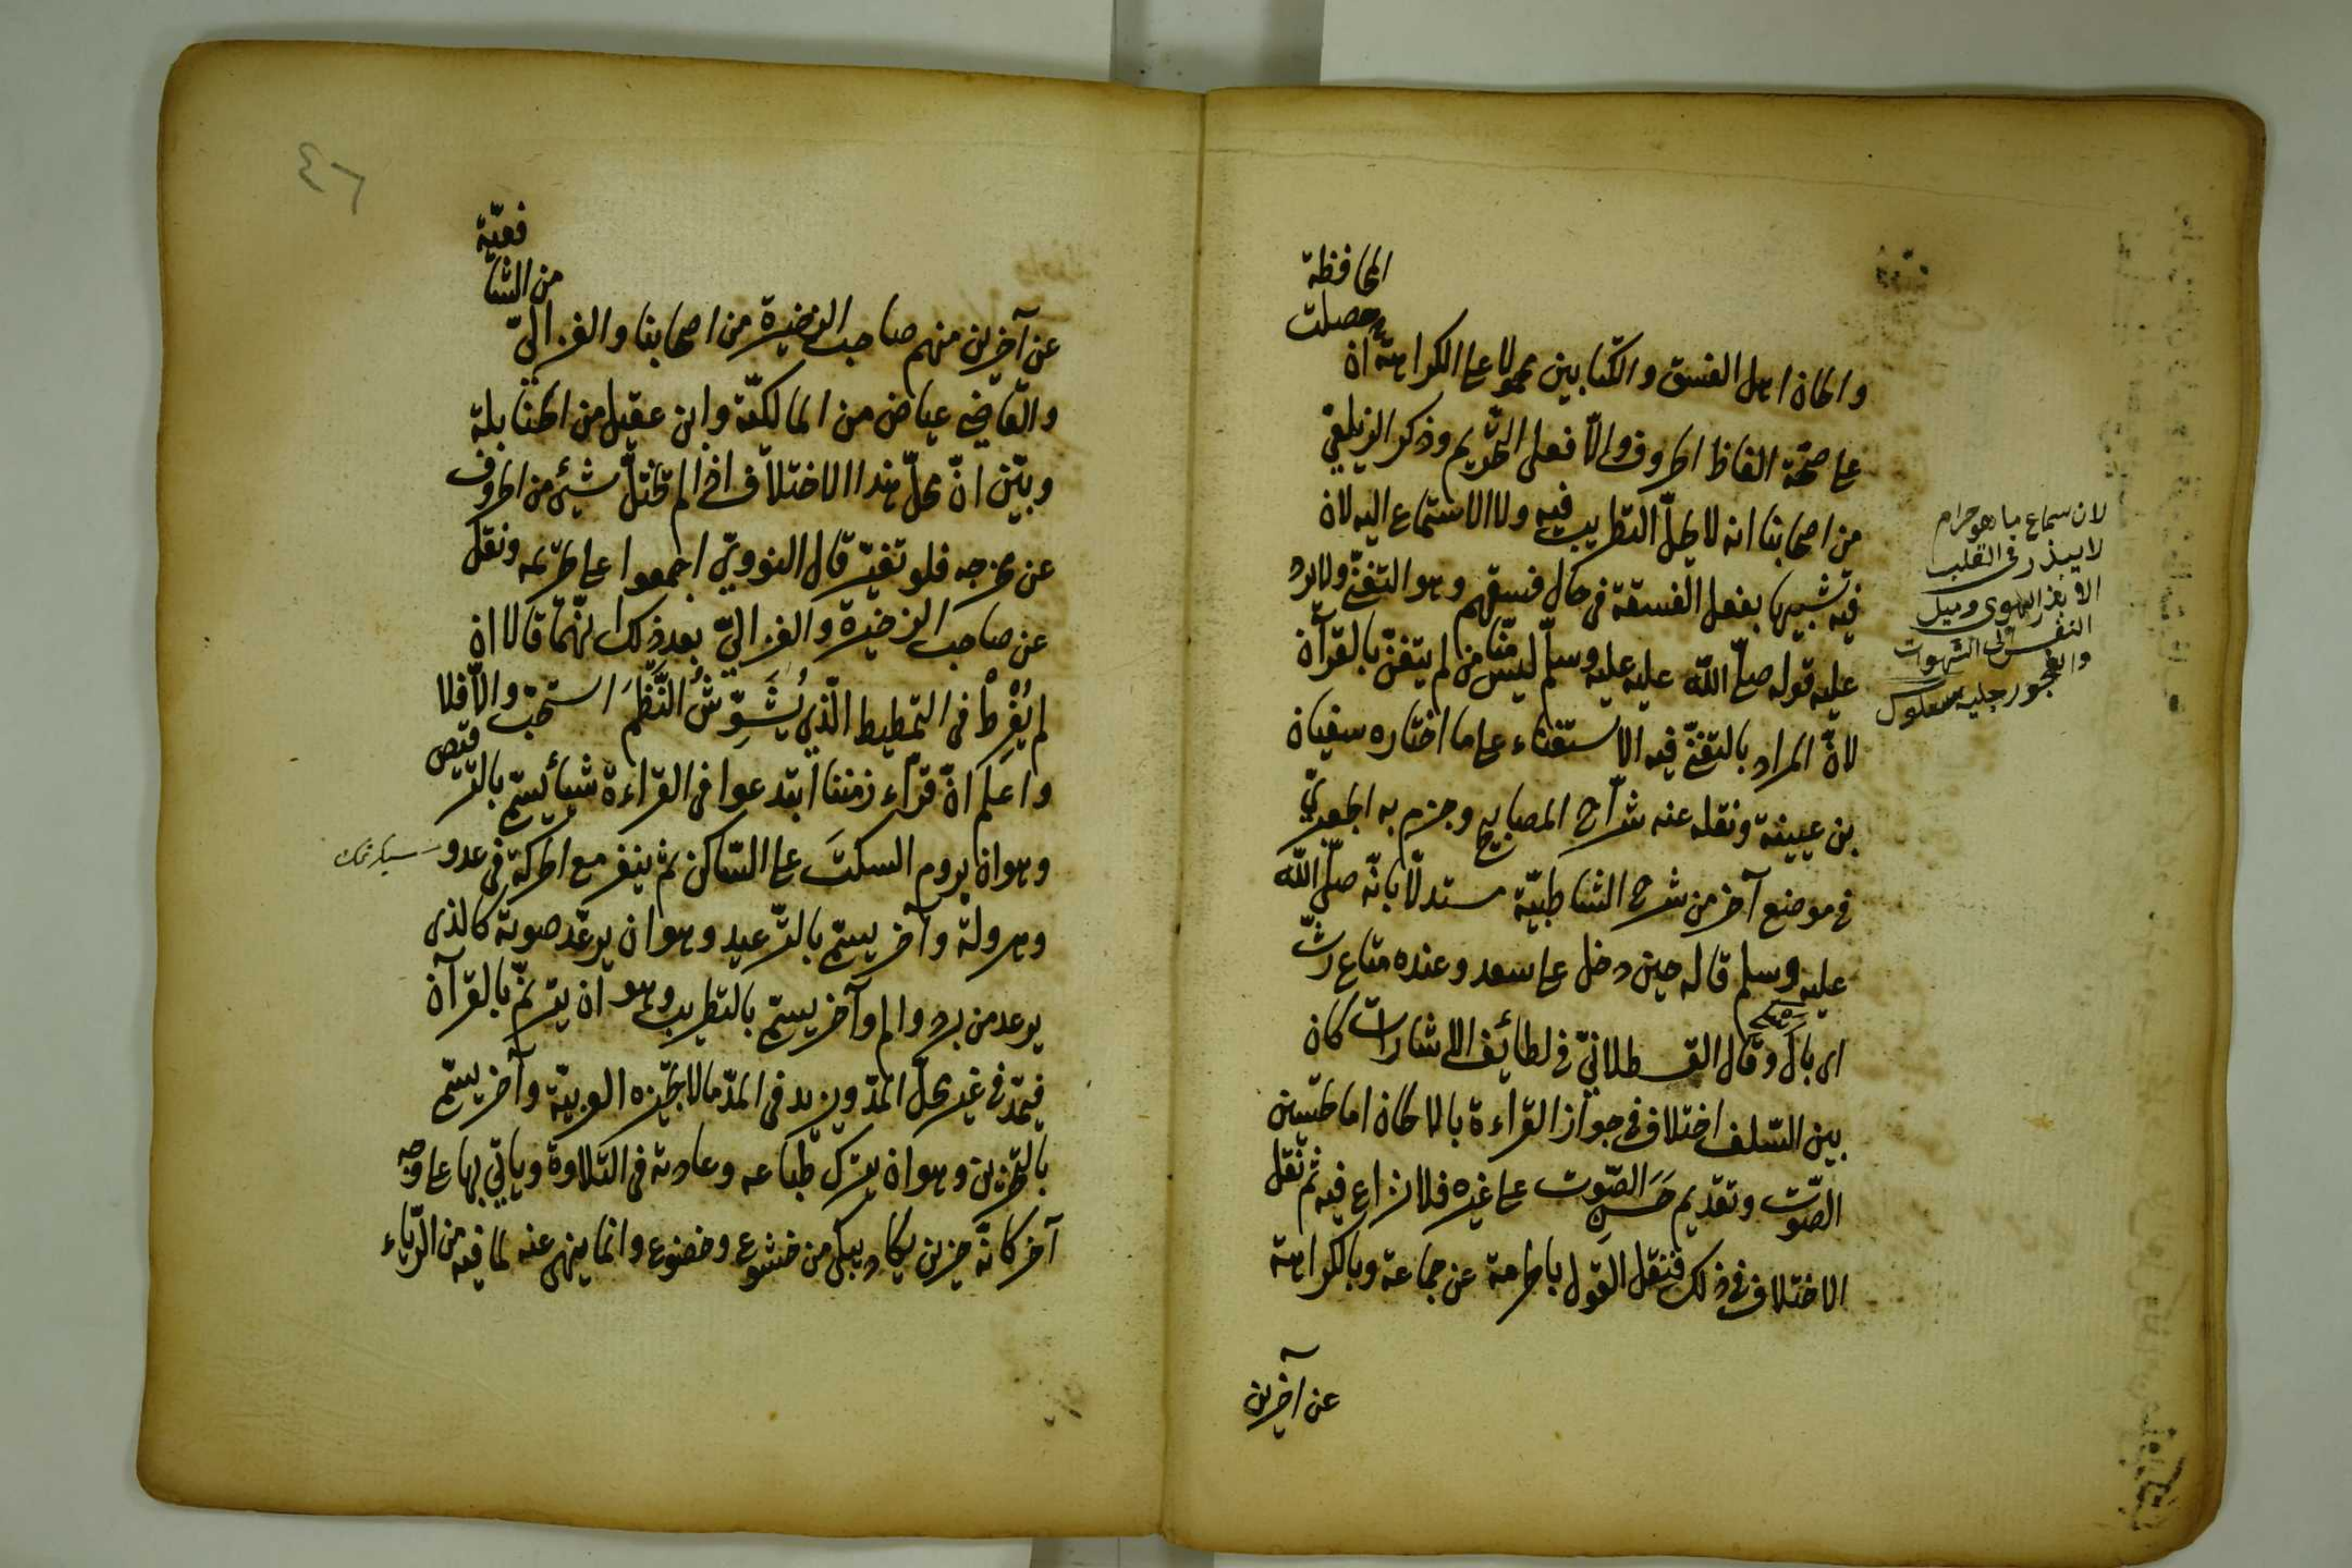 والحان اهل الفسق والكتابين محمولا على الكراهة ان حصلت المحافظة
على صحة الفاظ الحروف والا فعلى التحريم وذكر الزيلعي
من اصحابنا انه لا يحل التطريب فيه ولا الاستماع اليه لان
فيه تشبيها بفعل الفسقة في حال فسقهم وهو التغني ولا يرد
عليه قوله صلى الله عليه عليه وسلم ليس منا من لم يتغن بالقرآن
لان المراد بالتغني فيه الاستغناء على ما اختاره سفيان
بن عيينة ونقله عنه شراح المصابيح وجزم به الجعبري
في موضع آخر من شرح الشاطبية مستدلا بانه صلى الله
عليه وسلم قاله حين دخل على سعد وعنده متاع رث
اى بال وقال القسطلاني في لطائف الاشارات كان
بين السلف اختلاف في جواز القراءة بالالحان اما تحسين
الصوت وتقديم حسن الصوت على غيره فلا نزاع فيه ثم نقل
الاختلاف في ذلك فنقل القول بالحرمة عن جماعة وبالكراهة
عن آخرين
لان سماع ما هو حرام
لا يبذر في القلب
الا بذر الهوى وميل
النفس الى الشهوات
والفجور
٤٦
عن آخرين منهم صاحب الذخيرة من اصحابنا والغزالي من الشافعية
والقاضي عياض من المالكية وابن عقيل من الحنابلة
وبين ان محل هذا الاختلاف اذا لم تختل شيء من الحروف
عن مخرجه فلو تغير قال النووي اجمعوا على تحريمه ونقل
عن صاحب الذخيرة والغزالي بعد ذلك انهما قالا ان
لم يُفْرِطْ في التمطيط الذي يُشَوِّشُ النَّظْمَ استحب والا فلا
واعلم ان قراء زمننا ابتدعوا في القراءة شيأ يسمى بالترقيص
وهو ان يروم السكت على الساكن ثم ينفر مع الحركة في عدو
وهرولة وآخر يسمى بالترعيد وهو ان يرعد صوته كالذى
يرعد من برد والم وآخر يسمى بالتطريب وهو ان يترنم بالقرآن
فيمد في غير محل المد ويزيد في المد ما لا تجيزه العربية وآخر يسمى
بالتحزين وهو ان يترك طباعه وعادته في التلاوة ويأتي بها على وجه
آخر كانه حزين يكاد يبكي من خشوع وخضوع وانما ينهى عنه لما فيه من الرياء